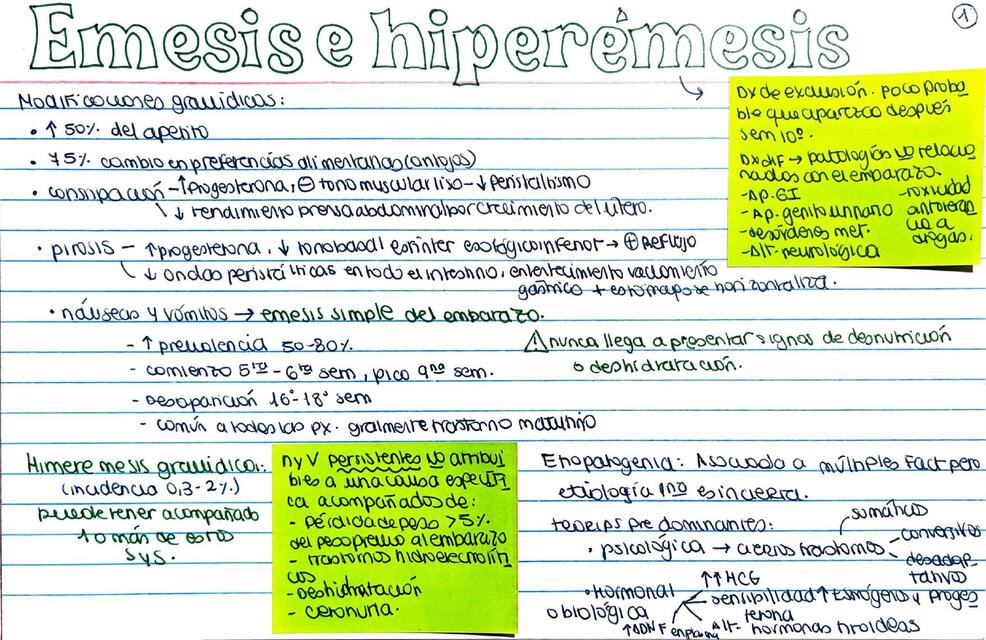 Emesis e hiperémesis
1
Modificaciones gravidicas:
• ↑ 50% del apetito
• 75% cambio en preferencias alimentarias (antojos)
• constipación - ↑ Progesterona, ⊖ tono muscular liso - ↓ peristaltismo
↓ rendimiento prensa abdominal por crecimiento del útero.
• pirosis - ↑ progesterona, ↓ tono basal esfinter esofágico inferior → ⊕ Reflujo
↓ ondas peristálticas en todo el intestino, enlentecimiento vaciamiento
gástrico + estomago se horizontaliza.
• náuseas y vómitos → emesis simple del embarazo.
- ↑ prevalencia 50-80%.
- comienzo 5ta - 6ta sem, pico 9na sem.
- Desaparición 16° - 18° sem
- común a todas las px. gralmente trastorno matutino
⚠ nunca llega a presentar signos de desnutrición
o deshidratación.
Dx de exclusión. Poco proba
ble que aparezca después
sem 10°.
Dx dif → patologías no relacio
nadas con el embarazo.
- Ap. GI
- Ap. genitourinario
- desórdenes met.
- Alt. neurológica
- toxicidad
o intoleran
cia a
drogas.
Hiperemesis gravidica:
(incidencia 0,3-2%)
puede tener acompañado
1 o más de estos
SyS.
n y V persistentes no atribui
bles a una causa específi
ca acompañados de:
- pérdida de peso >5%
del peso previo al embarazo
- trastornos hidroelectrolíti
cos
- Deshidratación
- cetonuria.
Etiopatogenia: Asociado a múltiples Fact pero
etiología 1na es incierta.
teorías predominantes:
• psicológica → a ceros trastornos
somáticos
conversivos
desadap
tativos
• hormonal
o biológica
↑↑ HCG
sensibilidad ↑ Estrógeno y proges
terona
Alt- hormonas tiroideas
↑ DNF en plasma